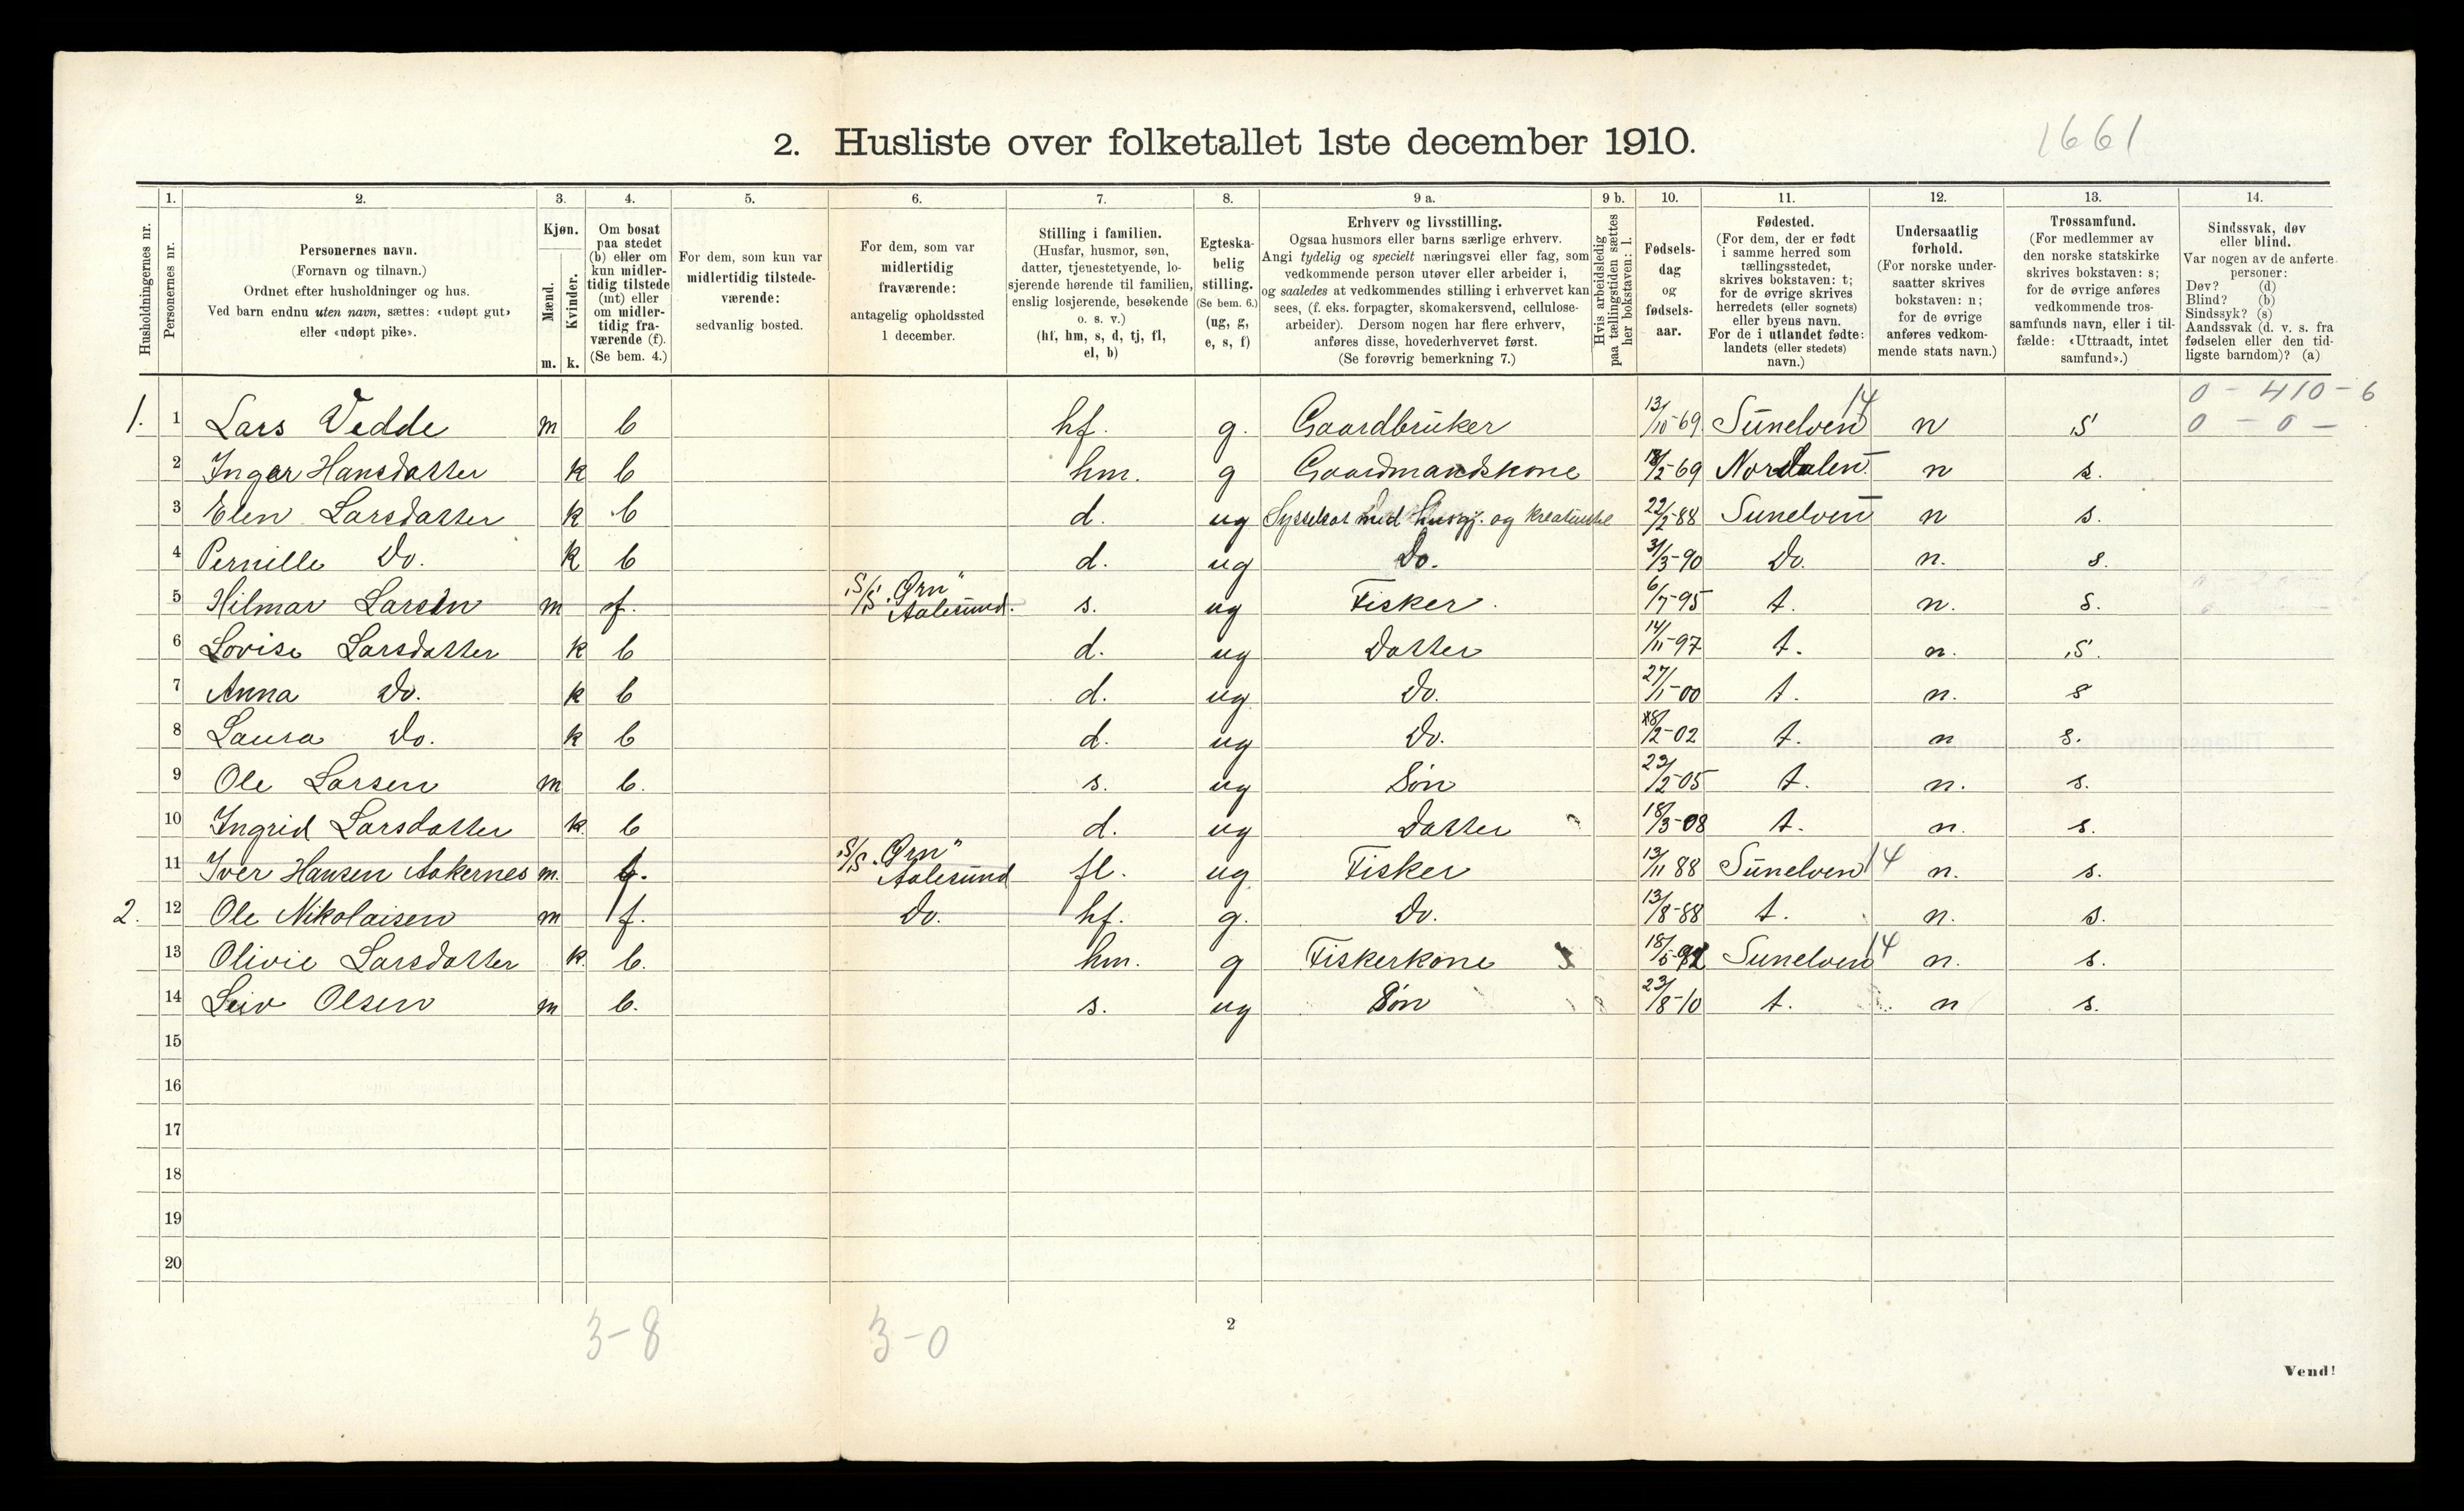 2. Husliste over folketallet 1ste december 1910.
1661
Husholdningernes nr.
1. Personernes nr.
2. Personernes navn. (Fornavn og tilnavn.) Ordnet efter husholdninger og hus. Ved barn endnu uten navn, sættes: «udøpt gut» eller «udøpt pike».
3. Kjøn. Mænd. m. Kvinder. k.
4. Om bosat paa stedet (b) eller om kun midlertidig tilstede (mt) eller om midlertidig fraværende (f). (Se bem. 4.)
5. For dem, som kun var midlertidig tilstedeværende: sedvanlig bosted.
6. For dem, som var midlertidig fraværende: antagelig opholdssted 1 december.
7. Stilling i familien. (Husfar, husmor, søn, datter, tjenestetyende, losjerende hørende til familien, enslig losjerende, besøkende o. s. v.) (hf, hm, s, d, tj, fl, el, b)
8. Egteskabelig stilling. (Se bem. 6.) (ug, g, e, s, f)
9 a. Erhverv og livsstilling. Ogsaa husmors eller barns særlige erhverv. Angi tydelig og specielt næringsvei eller fag, som vedkommende person utøver eller arbeider i, og saaledes at vedkommendes stilling i erhvervet kan sees, (f. eks. forpagter, skomakersvend, cellulosearbeider). Dersom nogen har flere erhverv, anføres disse, hovederhvervet først. (Se forøvrig bemerkning 7.)
9 b. Hvis arbeidsledig paa tællingstiden sættes her bokstaven: l.
10. Fødselsdag og fødselsaar.
11. Fødested. (For dem, der er født i samme herred som tællingsstedet, skrives bokstaven: t; for de øvrige skrives herredets (eller sognets) eller byens navn. For de i utlandet fødte: landets (eller stedets) navn.)
12. Undersaatlig forhold. (For norske undersaatter skrives bokstaven: n; for de øvrige anføres vedkommende stats navn.)
13. Trossamfund. (For medlemmer av den norske statskirke skrives bokstaven: s; for de øvrige anføres vedkommende trossamfunds navn, eller i tilfælde: «Uttraadt, intet samfund».)
14. Sindssvak, døv eller blind. Var nogen av de anførte personer: Døv? (d) Blind? (b) Sindssyk? (s) Aandssvak (d. v. s. fra fødselen eller den tidligste barndom)? (a)
0 - 410 - 6
1. 1 Lars Vedde m b hf. g. Gaardbruker 13/10-69 Sunelven 14 n s 0 - 0 -
2 Inger Hansdatter k b hm. g Gaardmandskone 18/2-69 Nordalen n s.
3 Elen Larsdatter k b d. ug Sysselsat med husgj. og kreaturstel 22/2-88 Sunelven n s.
4 Pernille Do. k b d. ug Do. 31/3-90 Do. n. s.
5 Hilmar Larsen m f. S/S "Ørn" Aalesund. s. ug Fisker. 6/7-95 t. n. s.
6 Lovise Larsdatter k b d. ug Datter 14/11-97 t. n. s.
7 Anna Do. k b d. ug Do. 27/1-00 t. n. s
8 Laura Do. k b d. ug Do. 18/2-02 t. n s.
9 Ole Larsen m b. s. ug Søn 23/2-05 t. n. s.
10 Ingrid Larsdatter k. b d. ug Datter 18/3-08 t. n. s.
11 Iver Hansen Aakernes m. f. S/S "Ørn" Aalesund fl. ug Fisker 13/11 88 Sunelven 14 n. s.
2. 12 Ole Nikolaisen m f. Do. hf. g. Do. 13/8-88 t. n. s.
13 Olivie Larsdatter k. b. hm. g Fiskerkone 18/5-92 Sunelven 14 n. s.
14 Leiv Olsen m b. s. ug Søn 23/8-10 t. n s.
15
16
17
18
19
20
3-8 3-0
2
Vend!